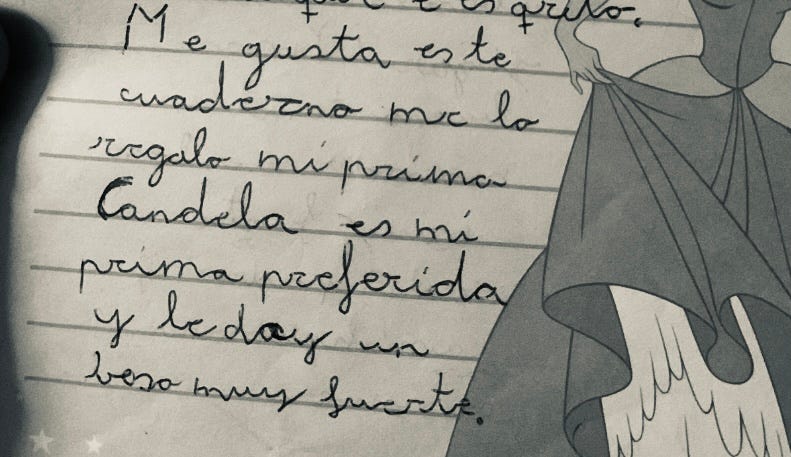 que e esqrito.
Me gusta este
cuaderno me lo
regalo mi prima
Candela es mi
prima preferida
y le doy un
beso muy fuerte.